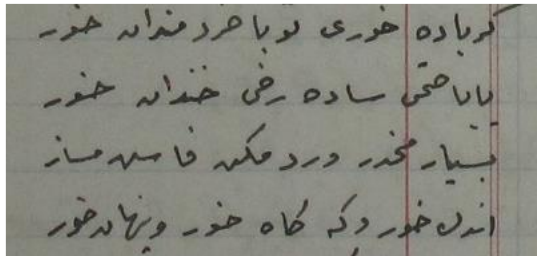 گر باده خوری تو با خردمندان خور
یا با صنمی ساده رخی خندان خور
بسیار مخور ورد مکن فاش مساز
اندک خور و گه گاه خور و پنهان خور